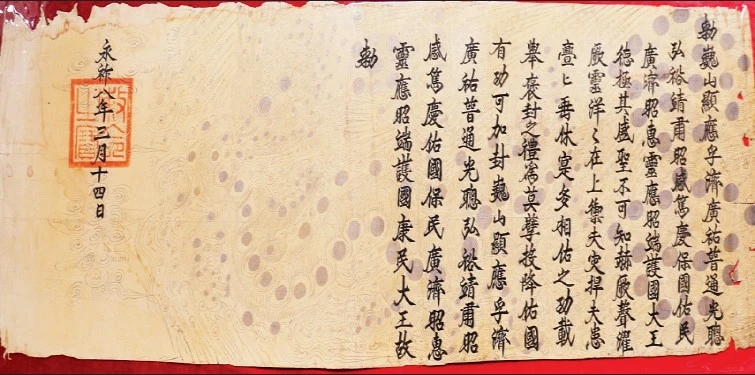 勅巍山顯應孚濟廣祐普通光聰
弘裕靖肅昭感篤慶保國佑民
廣濟昭惠靈應昭端護國大王
德極其盛聖不可知赫厥聲濯
厥靈洋〻在上禦夫灾捍夫患
亹〻垂休寔多相佑之功載
舉褒封之禮爲莫扶降佑國
有功可加封巍山顯應孚濟
廣祐普通光聰弘裕靖肅昭
感篤慶佑國保民廣濟昭惠
靈應昭端護國康民大王故
勅
永祚八年三月十四日